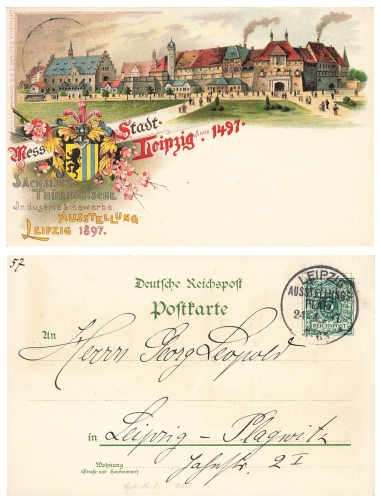 Stadt-
Mess Leipzig Anno 1497.
SÄCHSISCH-
THÜRINGISCHE
Industrie & Gewerbe
AUSSTELLUNG
LEIPZIG 1897.
57
Deutsche Reichspost
Postkarte
LEIPZIG
AUSSTELLUNGS-
PLATZ
REICHSPOST
An
Herrn Georg Leopold
in Leipzig-Plagwitz
Wohnung
(Straße und Hausnummer)
Jahnstr. 2 I